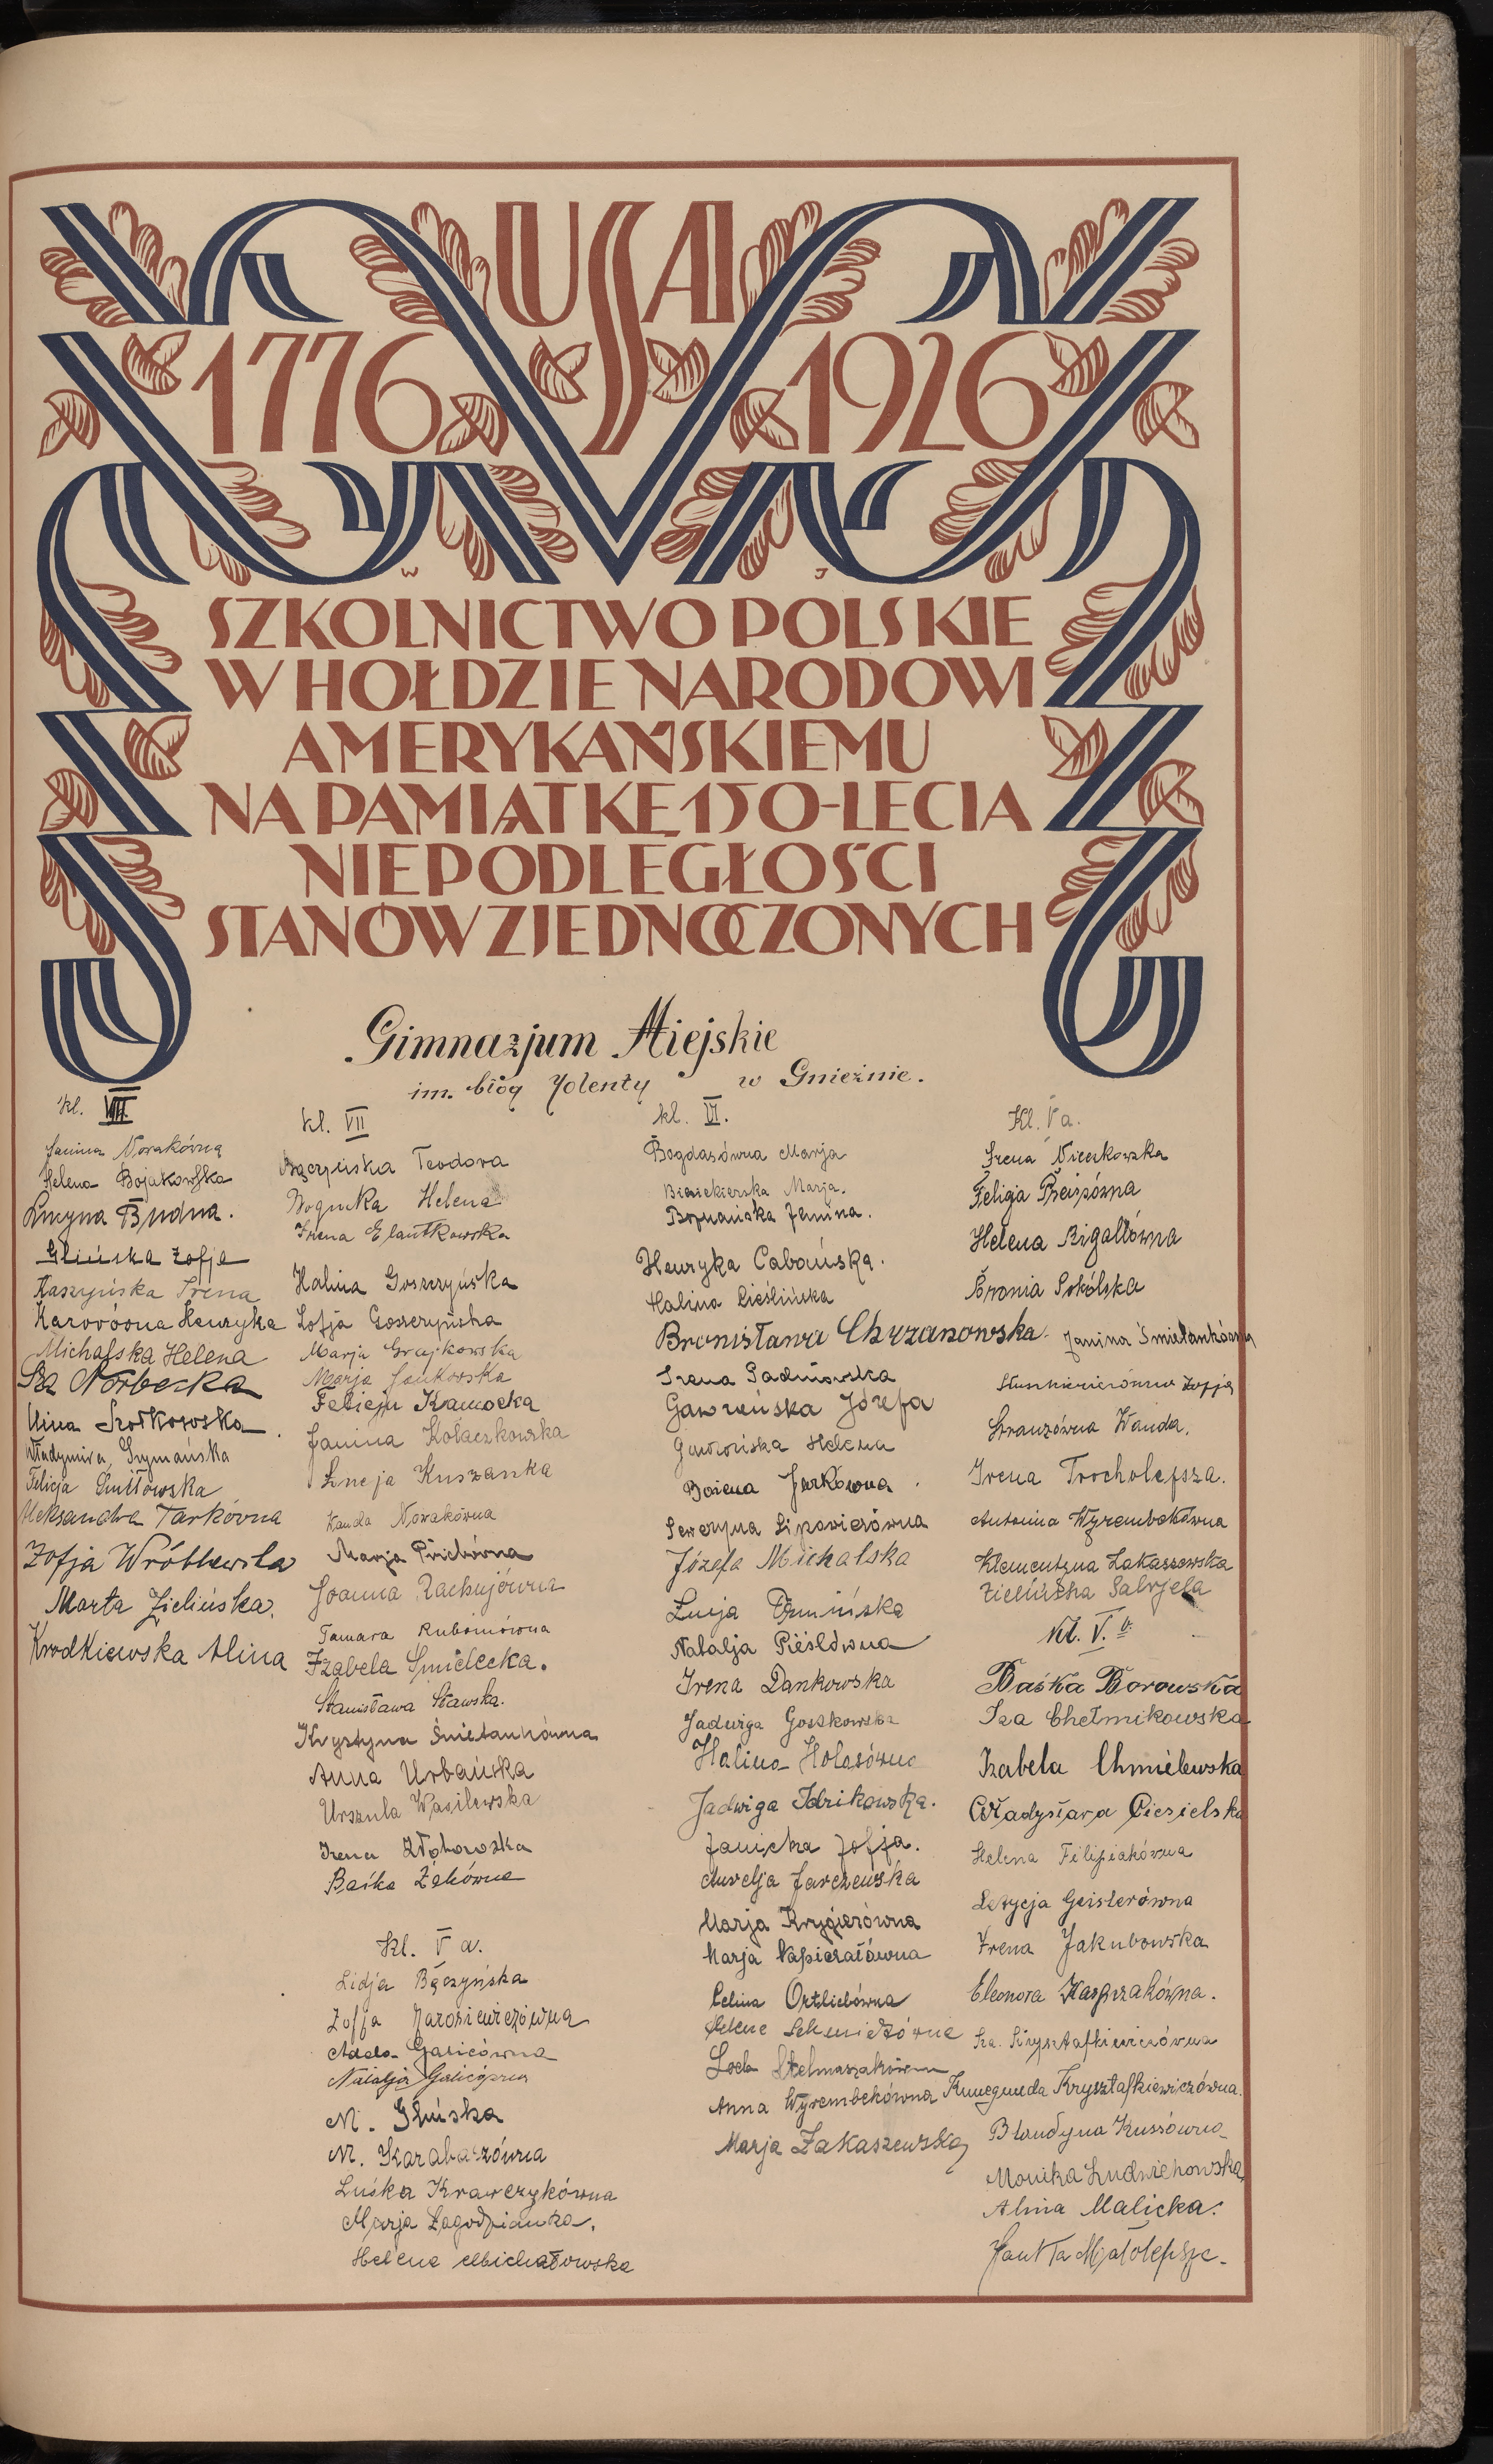 USA
1776 1926
W J
SZKOLNICTWO POLSKIE
W HOŁDZIE NARODOWI
AMERYKAŃSKIEMU
NA PAMIĄTKĘ 150-LECIA
NIEPODLEGŁOŚCI
STANÓW ZJEDNOCZONYCH
Gimnazjum Miejskie
im. błog Jolenty w Gnieźnie.
kl. VIII.
Janina Nowakówna
Helena Bojakowska
Lucyna Budna.
Glińska Zofja
Kaszyńska Irena
Henryka
Michalska Helena
Iza Norbecka
Nina Szołkowska
Władymira Szymańska
Felicja
Aleksandra Tarkówna
Zofja Wróblewska
Marta Zielińska.
Krodkiewska Alina
kl. VII
Bączyńska Teodora
Bogucka Helena
Irena
Halina Goszczyńska
Zofja Goszczyńska
Marja Grajkowska
Marja Jankowska
Felicja Kamocka
Janina Kołaczkowska
Łucja Kuszanka
Wanda Nowakówna
Marja
Joanna
Tamara
Izabela Śmielecka.
Stanisława Sławska.
Krystyna Śmietankówna
Anna Urbańska
Urszula Wasilewska
Irena
Baśka
Kl. V a.
Lidja Bączyńska
Zofja Jarosiewiczówna
Ada Galicówna
Natalja Galicówna
M. Glińska
M. Karabaszówna
Luśka Krawczykówna
Marja Łagodzianka.
Helena Michałowska
kl. VI.
Bogdasówna Marja
Biesiekierska Marja.
Boznańska Janina.
Henryka Cabańska.
Halina Cieślińska
Bronisława Chrzanowska
Irena
Gawrońska Józefa
Gawrońska Helena
Bożena Jarkówna
Seweryna Lipowiczówna
Józefa Michalska
Łucja
Natalja
Irena Dankowska
Jadwiga Goszkowska
Halina Holasówna
Jadwiga Idzikowska.
Janicka Zofja.
Aurelja Jarczewska
Marja Krygierówna
Marja Napierałówna
Celina Ortliebówna
Helena
Loda Stelmaszakówna
Anna Wyrembekówna
Marja Zakaszewska
Kl. V a.
Irena Nieckowska
Felicja
Helena Rigallówna
Bronia Sokólska
Janina Śmietankówna
Zofja
Strauzówna Wanda.
Irena Trocholepsza.
Antonina Wyrembekówna
Klementyna Zakaszewska
Zielińska Gabrjela
Kl. V. b
Baśka Borowska
Iza Chełmikowska
Izabela Chmielewska
Władysława Ciesielska
Helena Filipiakówna
Letycja Geislerówna
Irena Jakubowska
Eleonora Kasprzakówna.
Iza. Krysztafkiewiczówna
Kunegunda Krysztafkiewiczówna.
Blandyna Kussówna
Monika Ludwichowska
Alina Malicka.
Małolepsza.